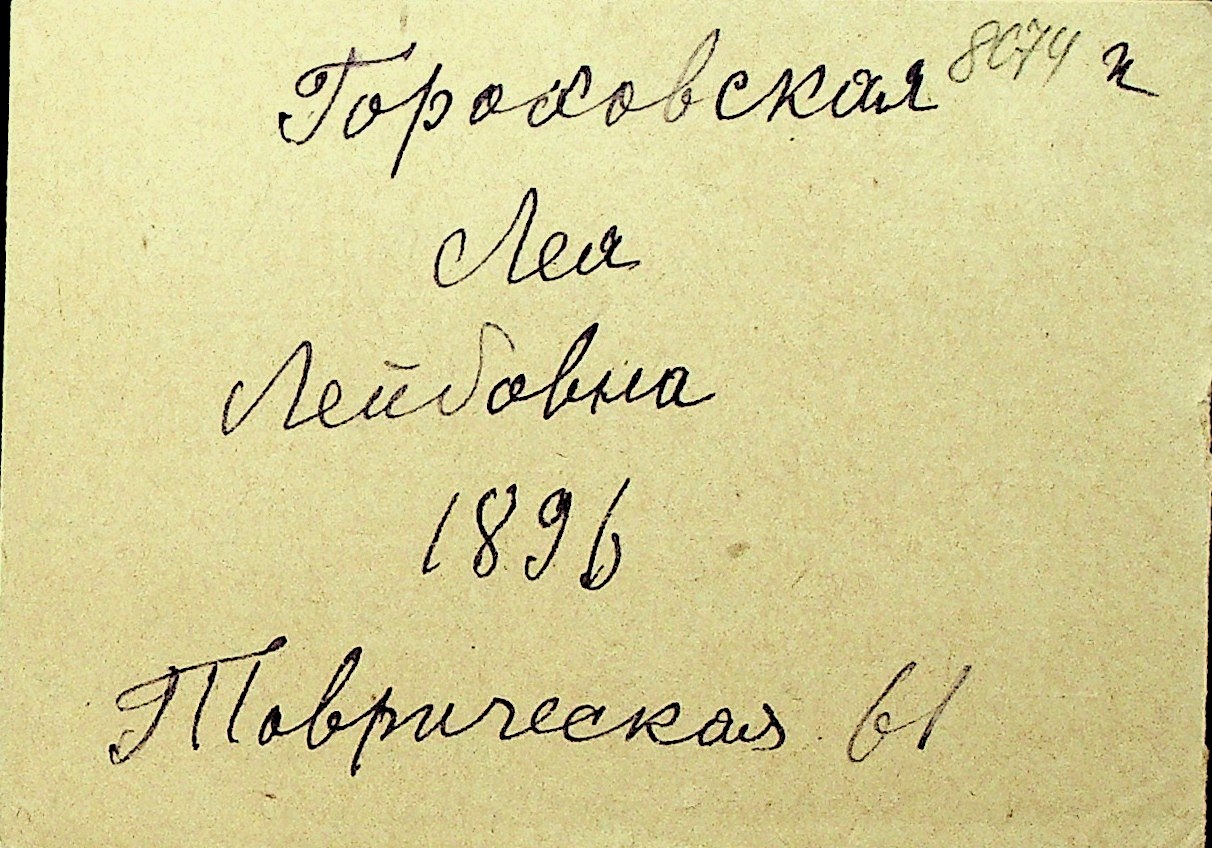 Гороховская 8074 н
Лея
Лейбовна
1896
Товрическая 61